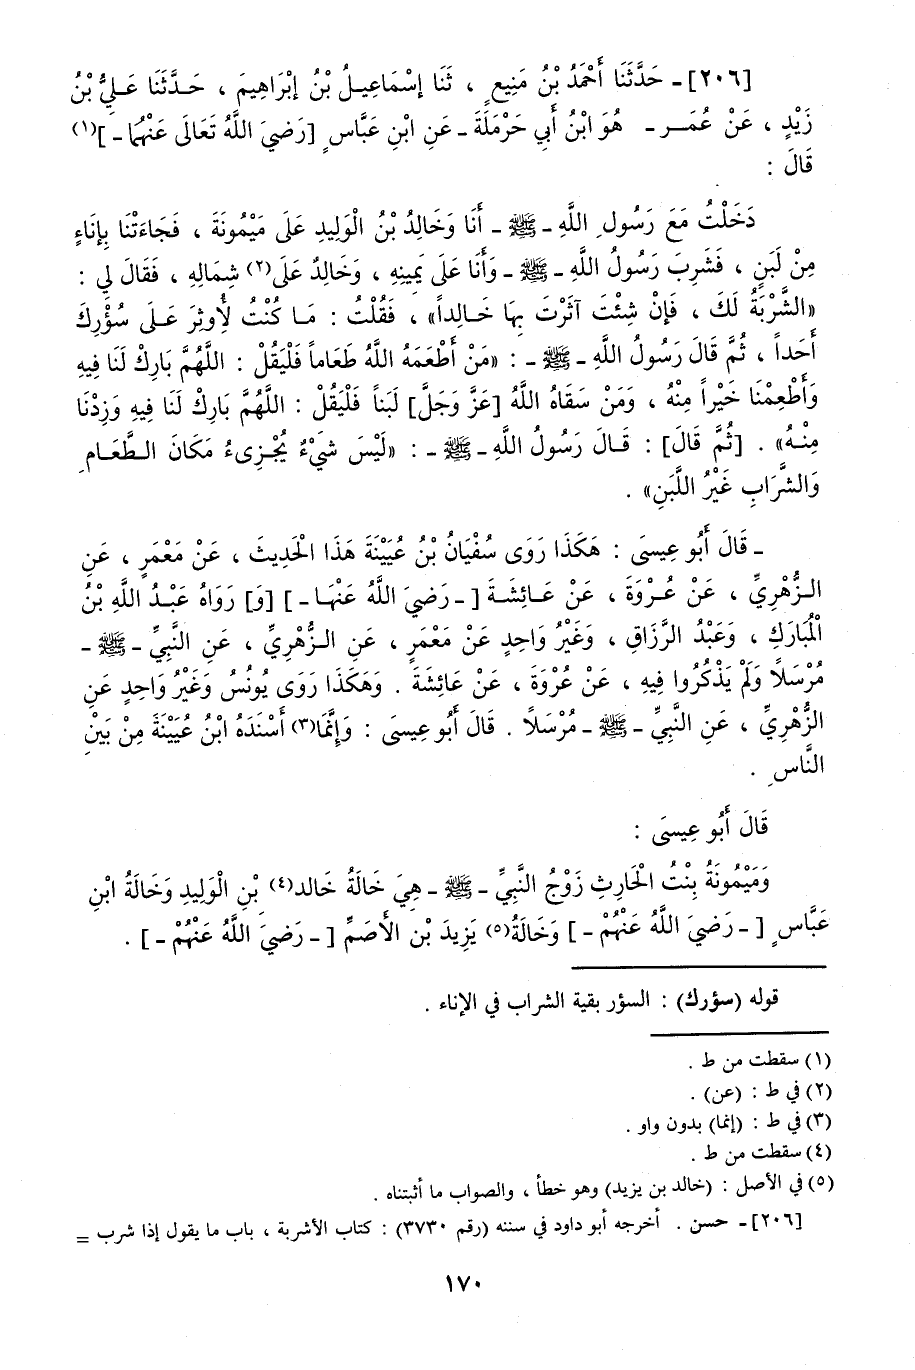 [٢٠٦]ـ حَدَّثَنَا أَحْمَدُ بْنُ مَنِيعٍ ، ثَنَا إِسْمَاعِيلُ بْنُ إِبْرَاهِيمَ ، حَـدَّثَنَا عَـلِيُّ بْنُ
زَيْدٍ ، عَنْ عُمَـرـ هُوَ ابْنُ أَبِي حَرْمَلَةَ ـ عَنِ ابْنِ عَبَّاسٍ [رَضِيَ اللَّهُ تَعَالَى عَنْهُمَا ـ](١)
قَالَ :
دَخَلْتُ مَعَ رَسُولِ اللَّهِ ـ ﷺ ـ أَنَا وَخَالِدُ بْنُ الْوَلِيدِ عَلَى مَيْمُونَةَ ، فَجَاءَتْنَا بِإِنَاءٍ
مِنْ لَبَنٍ ، فَشَرِبَ رَسُولُ اللَّهِ ـ ﷺ ـ وَأَنَا عَلَى يَمِينِهِ ، وَخَالِدٌ عَلَى(٢) شِمَالِهِ ، فَقَالَ لِي :
«الشَّرْبَةُ لَكَ ، فَإِنْ شِئْتَ آثَرْتَ بِهَا خَـالِداً» ، فَقُلْتُ : مَـا كُنْتُ لِأُوثِرَ عَـلَى سُؤْرِكَ
أَحَداً ، ثُمَّ قَالَ رَسُولُ اللَّهِ ـ ﷺ ـ : «مَنْ أَطْعَمَهُ اللَّهُ طَعَاماً فَلْيَقُلْ : اللَّهُمَّ بَارِكْ لَنَا فِيهِ
وَأَطْعِمْنَا خَيْراً مِنْهُ ، وَمَنْ سَقَاهُ اللَّهُ [عَزَّ وَجَلَّ] لَبَناً فَلْيَقُلْ : اللَّهُمَّ بَارِكْ لَنَا فِيهِ وَزِدْنَا
مِنْـهُ» . [ثُمَّ قَالَ] : قَـالَ رَسُولُ اللَّهِ ـ ﷺ ـ : «لَيْسَ شَيْءٌ يُجْـزِىءُ مَكَانَ الـطَّعَـامِ
وَالشَّرَابِ غَيْرُ اللَّبَنِ» .
ـ قَالَ أَبُو عِيسَى : هَكَذَا رَوَى سُفْيَانُ بْنُ عُيَيْنَةَ هَذَا الْحَدِيثَ ، عَنْ مَعْمَرٍ ، عَنِ
الـزُّهْرِيِّ ، عَنْ عُـرْوَةَ ، عَنْ عَـائِشَـةَ [ـ رَضِيَ اللَّهُ عَنْهَـا ـ] [وَ] رَوَاهُ عَبْـدُ اللَّهِ بْنُ
الْمُبَارَكِ ، وَعَبْدُ الرَّزَاقِ ، وَغَيْرُ وَاحِدٍ عَنْ مَعْمَرٍ ، عَنِ الـزُّهْرِيِّ ، عَنِ النَّبِيِّ ـ ﷺ ـ
مُرْسَلاً وَلَمْ يَذْكُرُوا فِيهِ ، عَنْ عُرْوَةَ ، عَنْ عَائِشَةَ . وَهَكَذَا رَوَى يُونُسُ وَغَيْرُ وَاحِدٍ عَنِ
الزُّهْرِيِّ ، عَنِ النَّبِيِّ ـ ﷺ ـ مُرْسَلاً . قَالَ أَبُو عِيسَى : وَإِنَّمَا(٣) أَسْنَدَهُ ابْنُ عُيَيْنَةَ مِنْ بَيْنِ
النَّاسِ .
قَالَ أَبُو عِيسَى :
وَمَيْمُونَةُ بِنْتُ الْحَارِثِ زَوْجُ النَّبِيِّ ـ ﷺ ـ هِيَ خَالَةُ خَالِدِ(٤) بْنِ الْوَلِيدِ وَخَالَةُ ابْنِ
عَبَّاسٍ [ـ رَضِيَ اللَّهُ عَنْهُمْ ـ] وَخَالَةُ(٥) يَزِيدَ بْنِ الأَصَمِّ [ـ رَضِيَ اللَّهُ عَنْهُمْ ـ] .
قوله (سؤرك) : السؤر بقية الشراب في الإناء .
(١) سقطت من ط .
(٢) في ط : (عن) .
(٣) في ط : (إنما) بدون واو .
(٤) سقطت من ط .
(٥) في الأصل : (خالد بن يزيد) وهو خطأ ، والصواب ما أثبتناه .
[٢٠٦]ـ حسن . أخرجه أبو داود في سننه (رقم ٣٧٣٠) : كتاب الأشربة ، باب ما يقول إذا شرب =
١٧٠